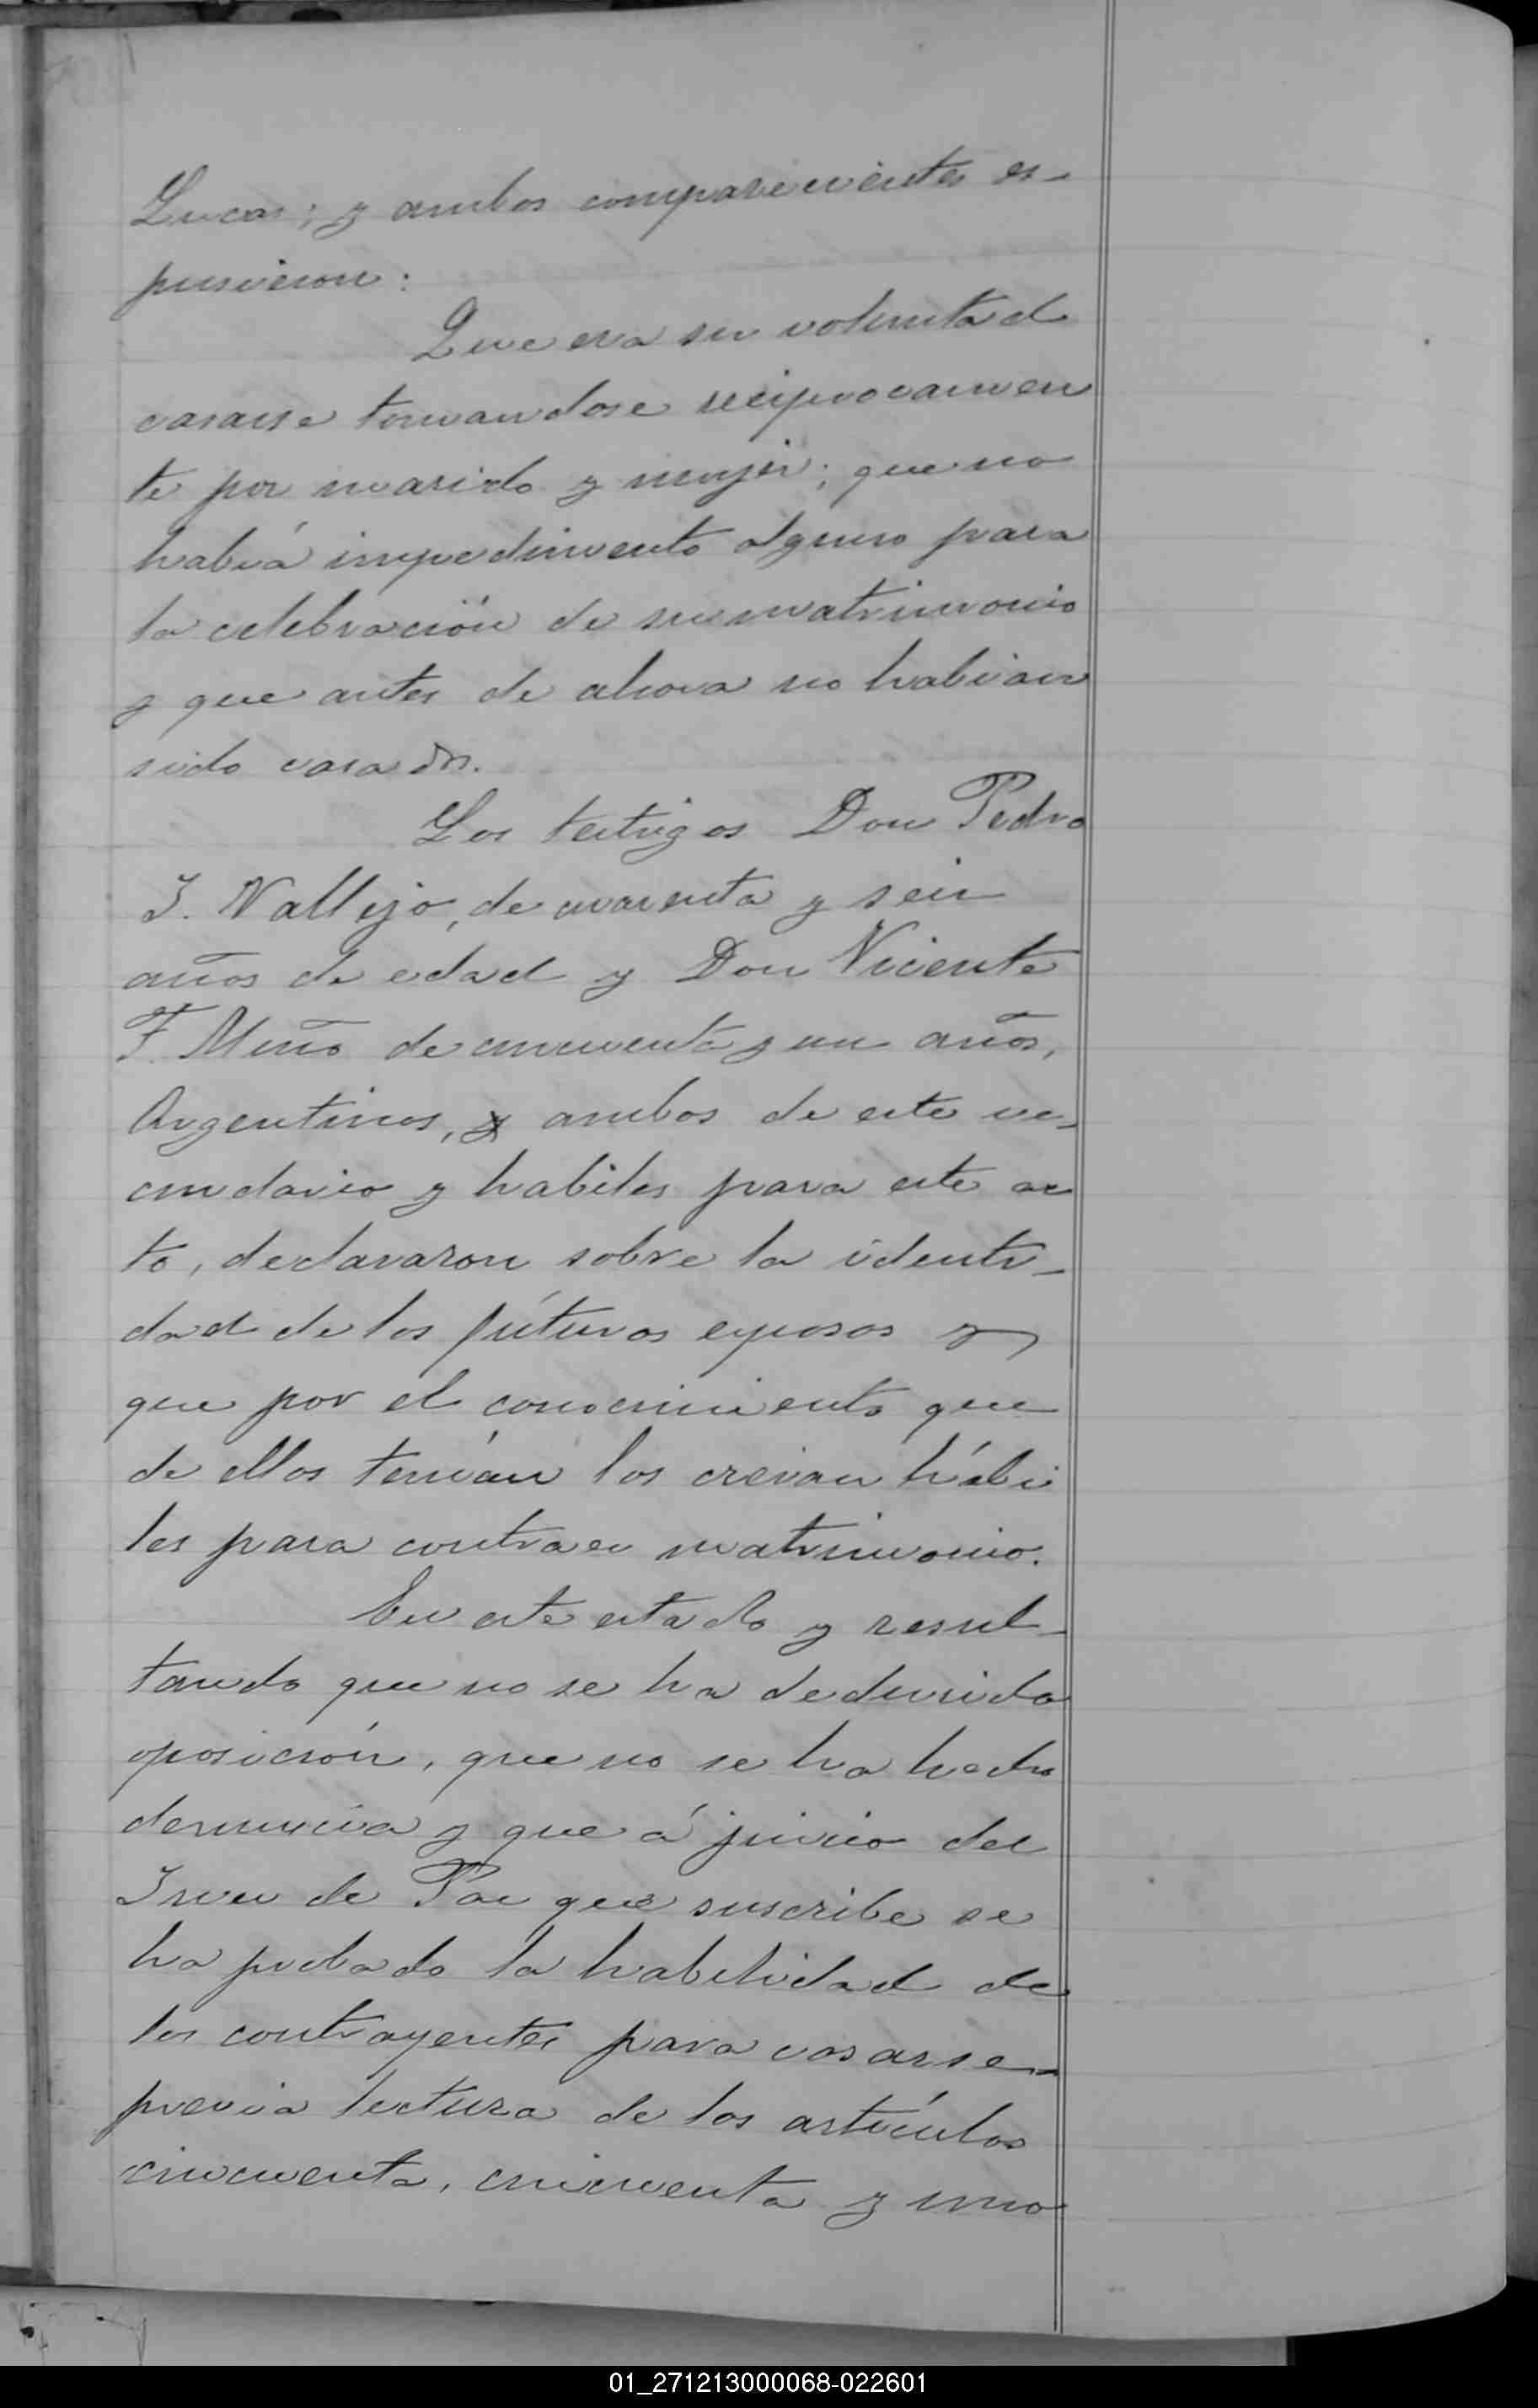 Lucas; y ambos comparecientes es-
pusieron:
Que era su voluntad
casarse tomandose reciprocamen
te por marido y mujer; que no
había impedimento alguno para
la celebración de su matrimonio
y que antes de ahora no habian
sido casados.
Los testigos Don Pedro
I. Vallejo, de cuarenta y seis
años de edad y Don Vicente
F. Miño de cincuenta y un años,
Argentinos, y ambos de este ve-
cindario y habiles para este ac
to, declararon sobre la identi-
dad de los fúturos esposos y
que por el conocimiento que
de ellos tenían los creian hábi
les para contraer matrimonio.
En este estado y resul-
tando que no se ha deducido
oposición, que no se ha hecho
denuncia y que á juicio del
Juez de Paz que suscribe se
ha probado la habilidad de
los contrayentes para casarse-
previa lectura de los artículos
cincuenta, cincuenta y uno
01_271213000068-022601